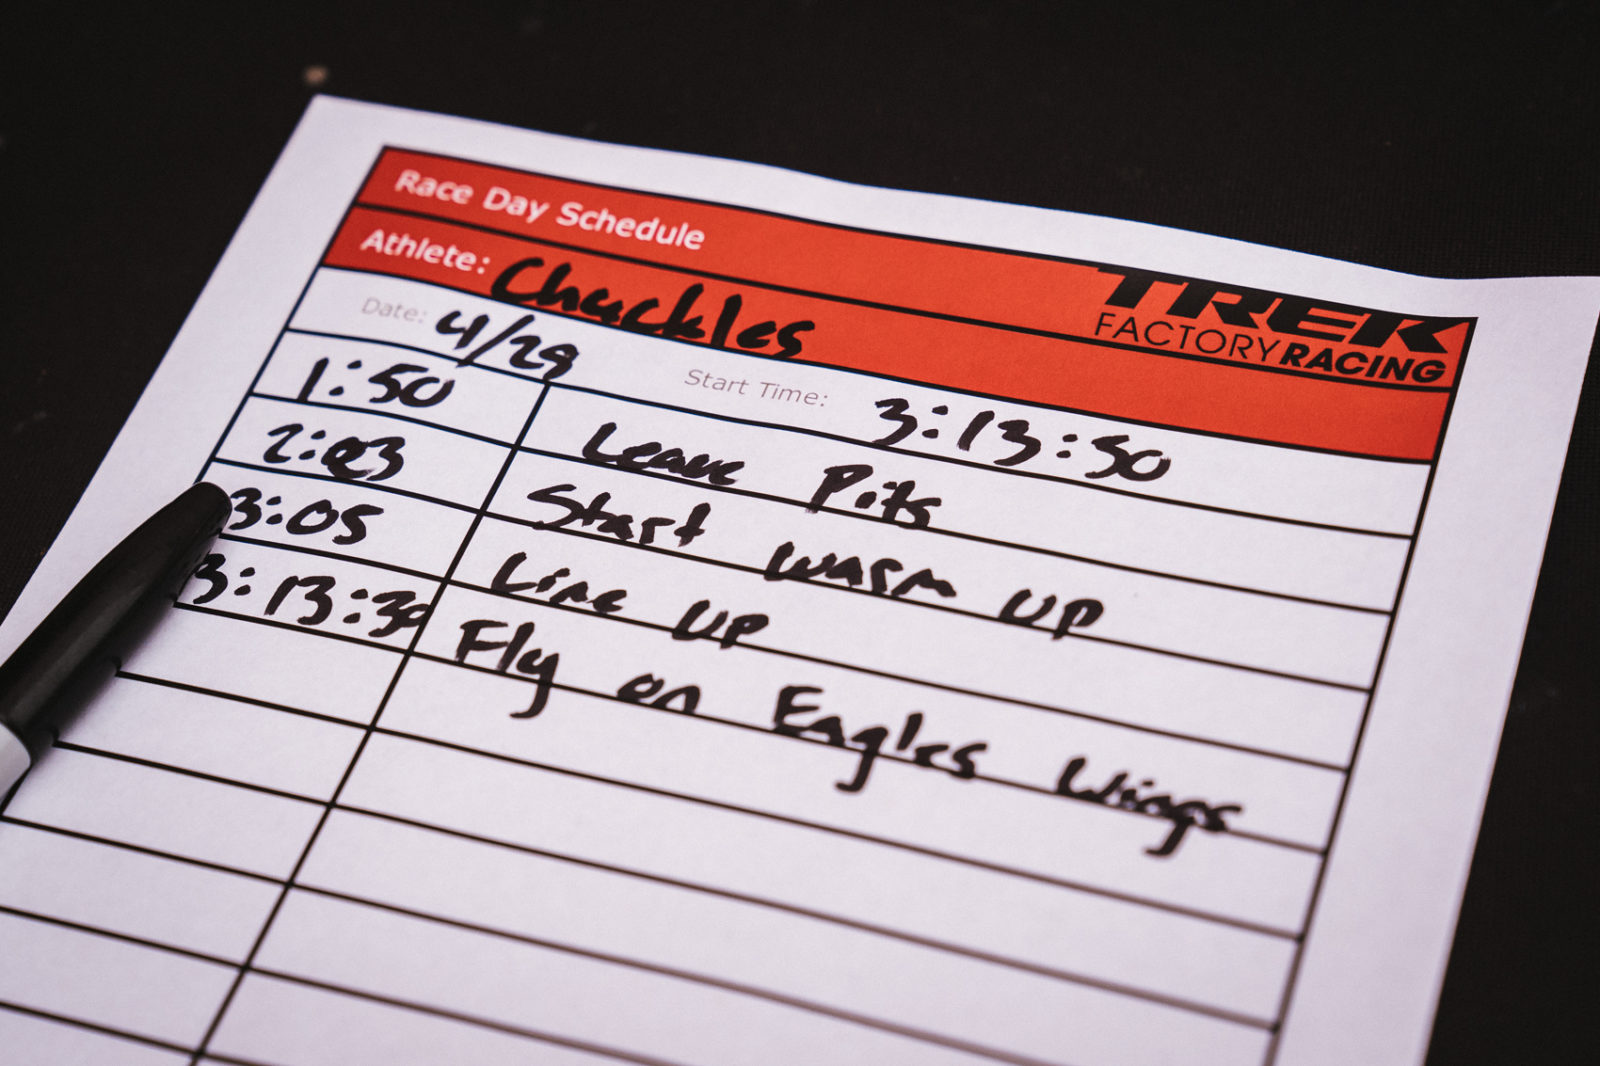 Race Day Schedule
TREK
FACTORY RACING
Athlete: Chuckles
Date: 4/29 Start Time: 3:13:50
1:50 Leave Pits
2:03 Start warm up
3:05 Line up
3:13:30 Fly on Eagles Wings